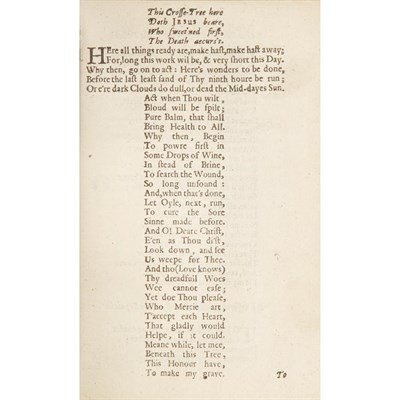 This Crosse-Tree here
Doth JESUS beare,
Who sweet'ned first,
The Death accurs't.
HEre all things ready are, make hast, make hast away;
For, long this work will be, & very short this Day.
Why then, go on to act: Here's wonders to be done,
Before the last least sand of Thy ninth houre be run;
Or e're dark Clouds do dull, or dead the Mid-dayes Sun.
Act when Thou wilt,
Bloud will be spilt;
Pure Balm, that shall
Bring Health to All.
Why then, Begin
To powre first in
Some Drops of Wine,
In stead of Brine,
To search the Wound,
So long unsound:
And, when that's done,
Let Oyle, next, run,
To cure the Sore
Sinne made before.
And O! Deare Christ,
E'en as Thou di'st,
Look down, and see
Us weepe for Thee.
And tho (Love knows)
Thy dreadfull Woes
Wee cannot ease;
Yet doe Thou please,
Who Mercie art,
T'accept each Heart,
That gladly would
Helpe, if it could.
Meane while, let mee,
Beneath this Tree,
This Honour have,
To make my grave.
To